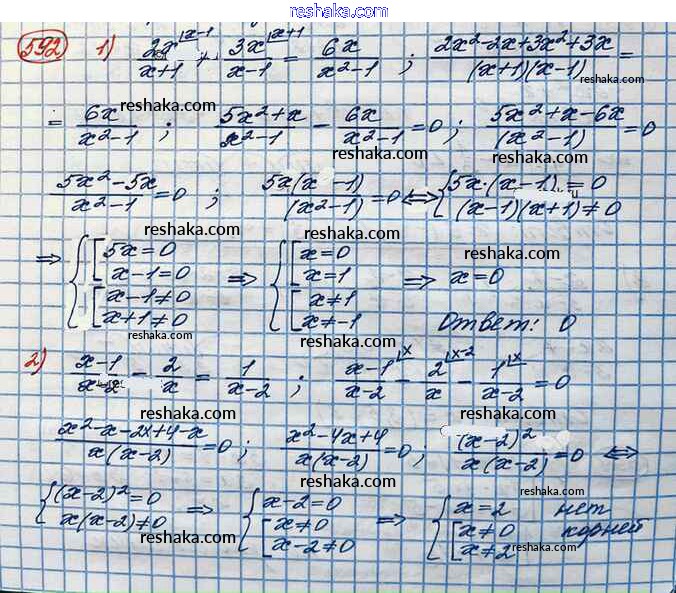 www.reshak.com
592 1) 2x|x-1 / x+1 + 3x|x+1 / x-1 = 6x / x²-1 ; 2x²-2x+3x²+3x / (x+1)(x-1) =
reshaka.com
= 6x / x²-1 ; 5x²+x / x²-1 - 6x / x²-1 = 0 ; 5x²+x-6x / (x²-1) = 0
reshaka.com
reshaka.com
reshaka.com
5x²-5x / x²-1 = 0 ; 5x(x-1) / (x²-1) = 0 ⟺ { 5x·(x-1) = 0
(x-1)(x+1) ≠ 0
reshaka.com
reshaka.com
reshaka.com
⇒ { [ 5x=0 ⇒ { [ x=0 ⇒ x=0
x-1=0 x=1
[ x-1≠0 [ x≠1
x+1≠0 x≠-1 Ответ: 0
reshaka.com
reshaka.com
2) x-1 / x-2 - 2 / x = 1 / x-2 ; x-1|x / x-2 - 2|x-2 / x - 1|x / x-2 = 0
reshaka.com
reshaka.com
reshaka.com
x²-x-2x+4-x / x(x-2) = 0 ; x²-4x+4 / x(x-2) = 0 ; (x-2)² / x(x-2) = 0 ⟺
reshaka.com
{ (x-2)²=0 ⇒ { x-2=0 ⇒ { x=2 нет
x(x-2)≠0 [ x≠0 [ x≠0 корней
x-2≠0 x≠2
reshaka.com
reshaka.com
reshaka.com